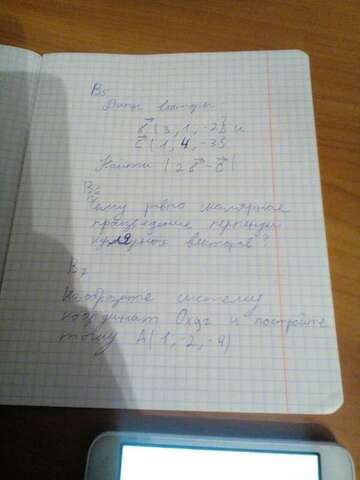 В5
Даны векторы
b {3, 1, -2} и
c {1, 4, -3}
Найти |2b - c|
В6
Чему равно скалярное
произведение перпенди
кулярных векторов?
В7
Изобразите систему
координат Oxyz и постройте
точку A(1, -2, -4)